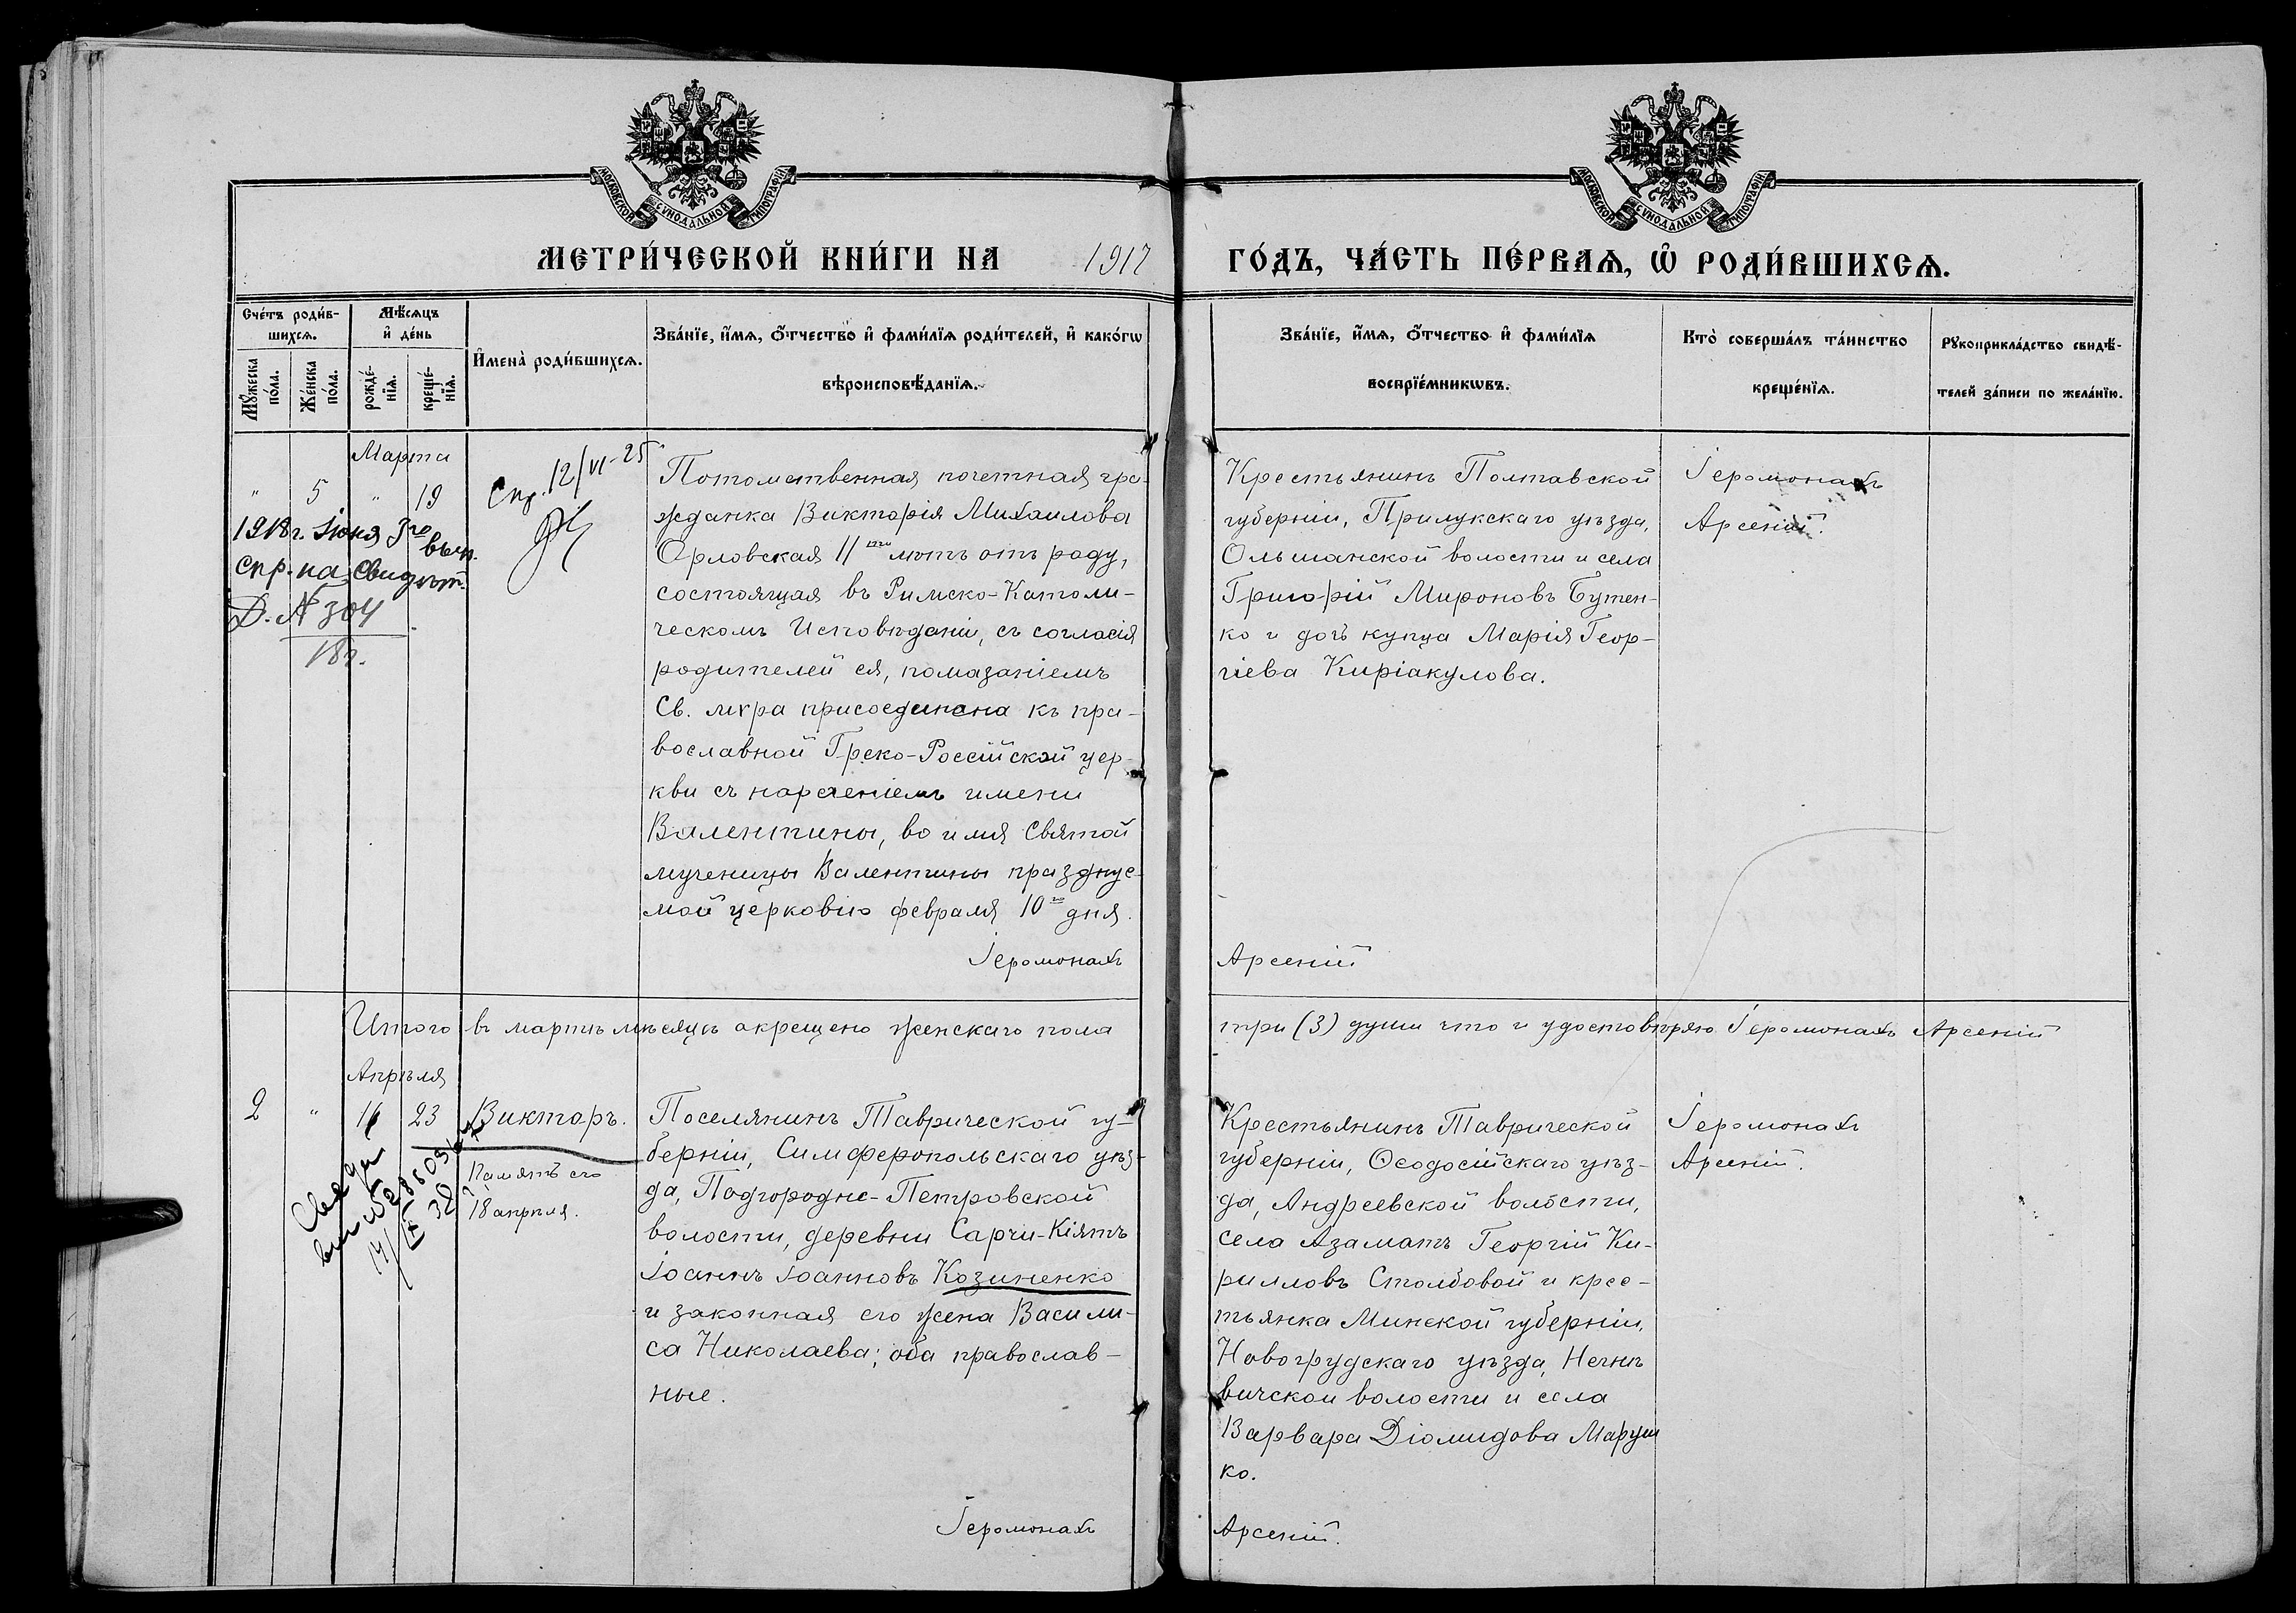 МОСКОВСКОЙ СѴНОДАЛЬНОЙ ТИПОГРАФІИ
МОСКОВСКОЙ СѴНОДАЛЬНОЙ ТИПОГРАФІИ
МЕТРИ́ЧЕСКОЙ КНИ́ГИ НА 1917 ГО́ДЪ, ЧА́СТЬ ПЕ́РВАѦ, Ѡ҆ РОДИ́ВШИХСѦ.
Счетъ роди́в-
шихсѧ.
Мꙋжеска по́ла.
Же́нска по́ла.
Мѣсѧцъ
и҆ де́нь
рожде́-
нїѧ.
креще́-
нїѧ.
И҆мена̀ роди́вшихсѧ.
Зва́нїе, и҆́мѧ, ѻ҆́тчество и҆ фами́лїѧ роди́телей, и҆ како́гѡ
вѣроисповѣ́данїѧ.
Зва́нїе, и҆́мѧ, ѻ҆́тчество и҆ фами́лїѧ
воспрїе́мникѡвъ.
Кто̀ соверша́лъ та́инство
креще́нїѧ.
Рꙋкоприкла́дство свидѣ́-
телей за́писи по жела́нїю.
Марта
" 5 " 19
1918 г. Іюня 3го
выч.
спр. на свидѣт.
Д. № 304
18 г.
Спр. 12/VI-25
Потомственная почетная гра-
жданка Викторія Михаилова
Орловская 11ти лѣтъ отъ роду,
состоящая въ Римско-Католи-
ческомъ Исповѣданіи, съ согласія
родителей ея, помазаніемъ
Св. мѵра присоединена къ пра-
вославной Греко-Россійской цер-
кви съ нареченіемъ имени
Валентины, во имя Святой
мученицы Валентины празднуе-
мой церковію февраля 10го дня.
Іеромонахъ
Крестьянинъ Полтавской
губерніи, Прилукскаго уѣзда,
Ольшанской волости и села
Григорій Мироновъ Бутен-
ко и дочь купца Марія Геор-
гіева Киріакулова.
Арсеній
Іеромонахъ
Арсеній.
Итого въ мартѣ мѣсяцѣ окрещено женскаго пола три (3) души что и удостовѣряю Іеромонахъ Арсеній
Апрѣля
2 " 16 23 Викторъ.
Память его
18 апрѣля.
14/IX 32
Поселянинъ Таврической гу-
берніи, Симферопольскаго уѣз-
да, Подгородне-Петровской
волости, деревни Сарчи-Кіятъ
Іоаннъ Іоанновъ Козиненко
и законная его жена Васили-
са Николаева; оба православ-
ные.
Іеромонахъ
Крестьянинъ Таврической
губерніи, Ѳеодосійскаго уѣз-
да, Андреевской волости,
села Азаматъ Георгій Ки-
рилловъ Столбовой и крес-
тьянка Минской губерніи,
Новогрудскаго уѣзда, Негнѣ
вичской волости и села
Варвара Діомидова Маруш
ко.
Арсеній.
Іеромонахъ
Арсеній.